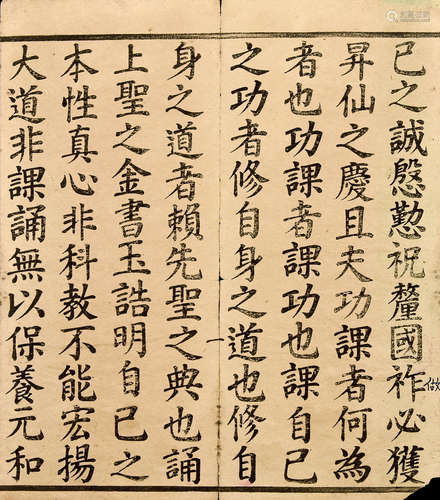 己之誠慇懃祝釐國祚必獲
昇仙之慶且夫功課者何為
者也功課者課功也課自己
之功者修自身之道也修自
身之道者賴先聖之典也誦
上聖之金書玉誥明自己之
本性真心非科教不能宏揚
大道非課誦無以保養元和